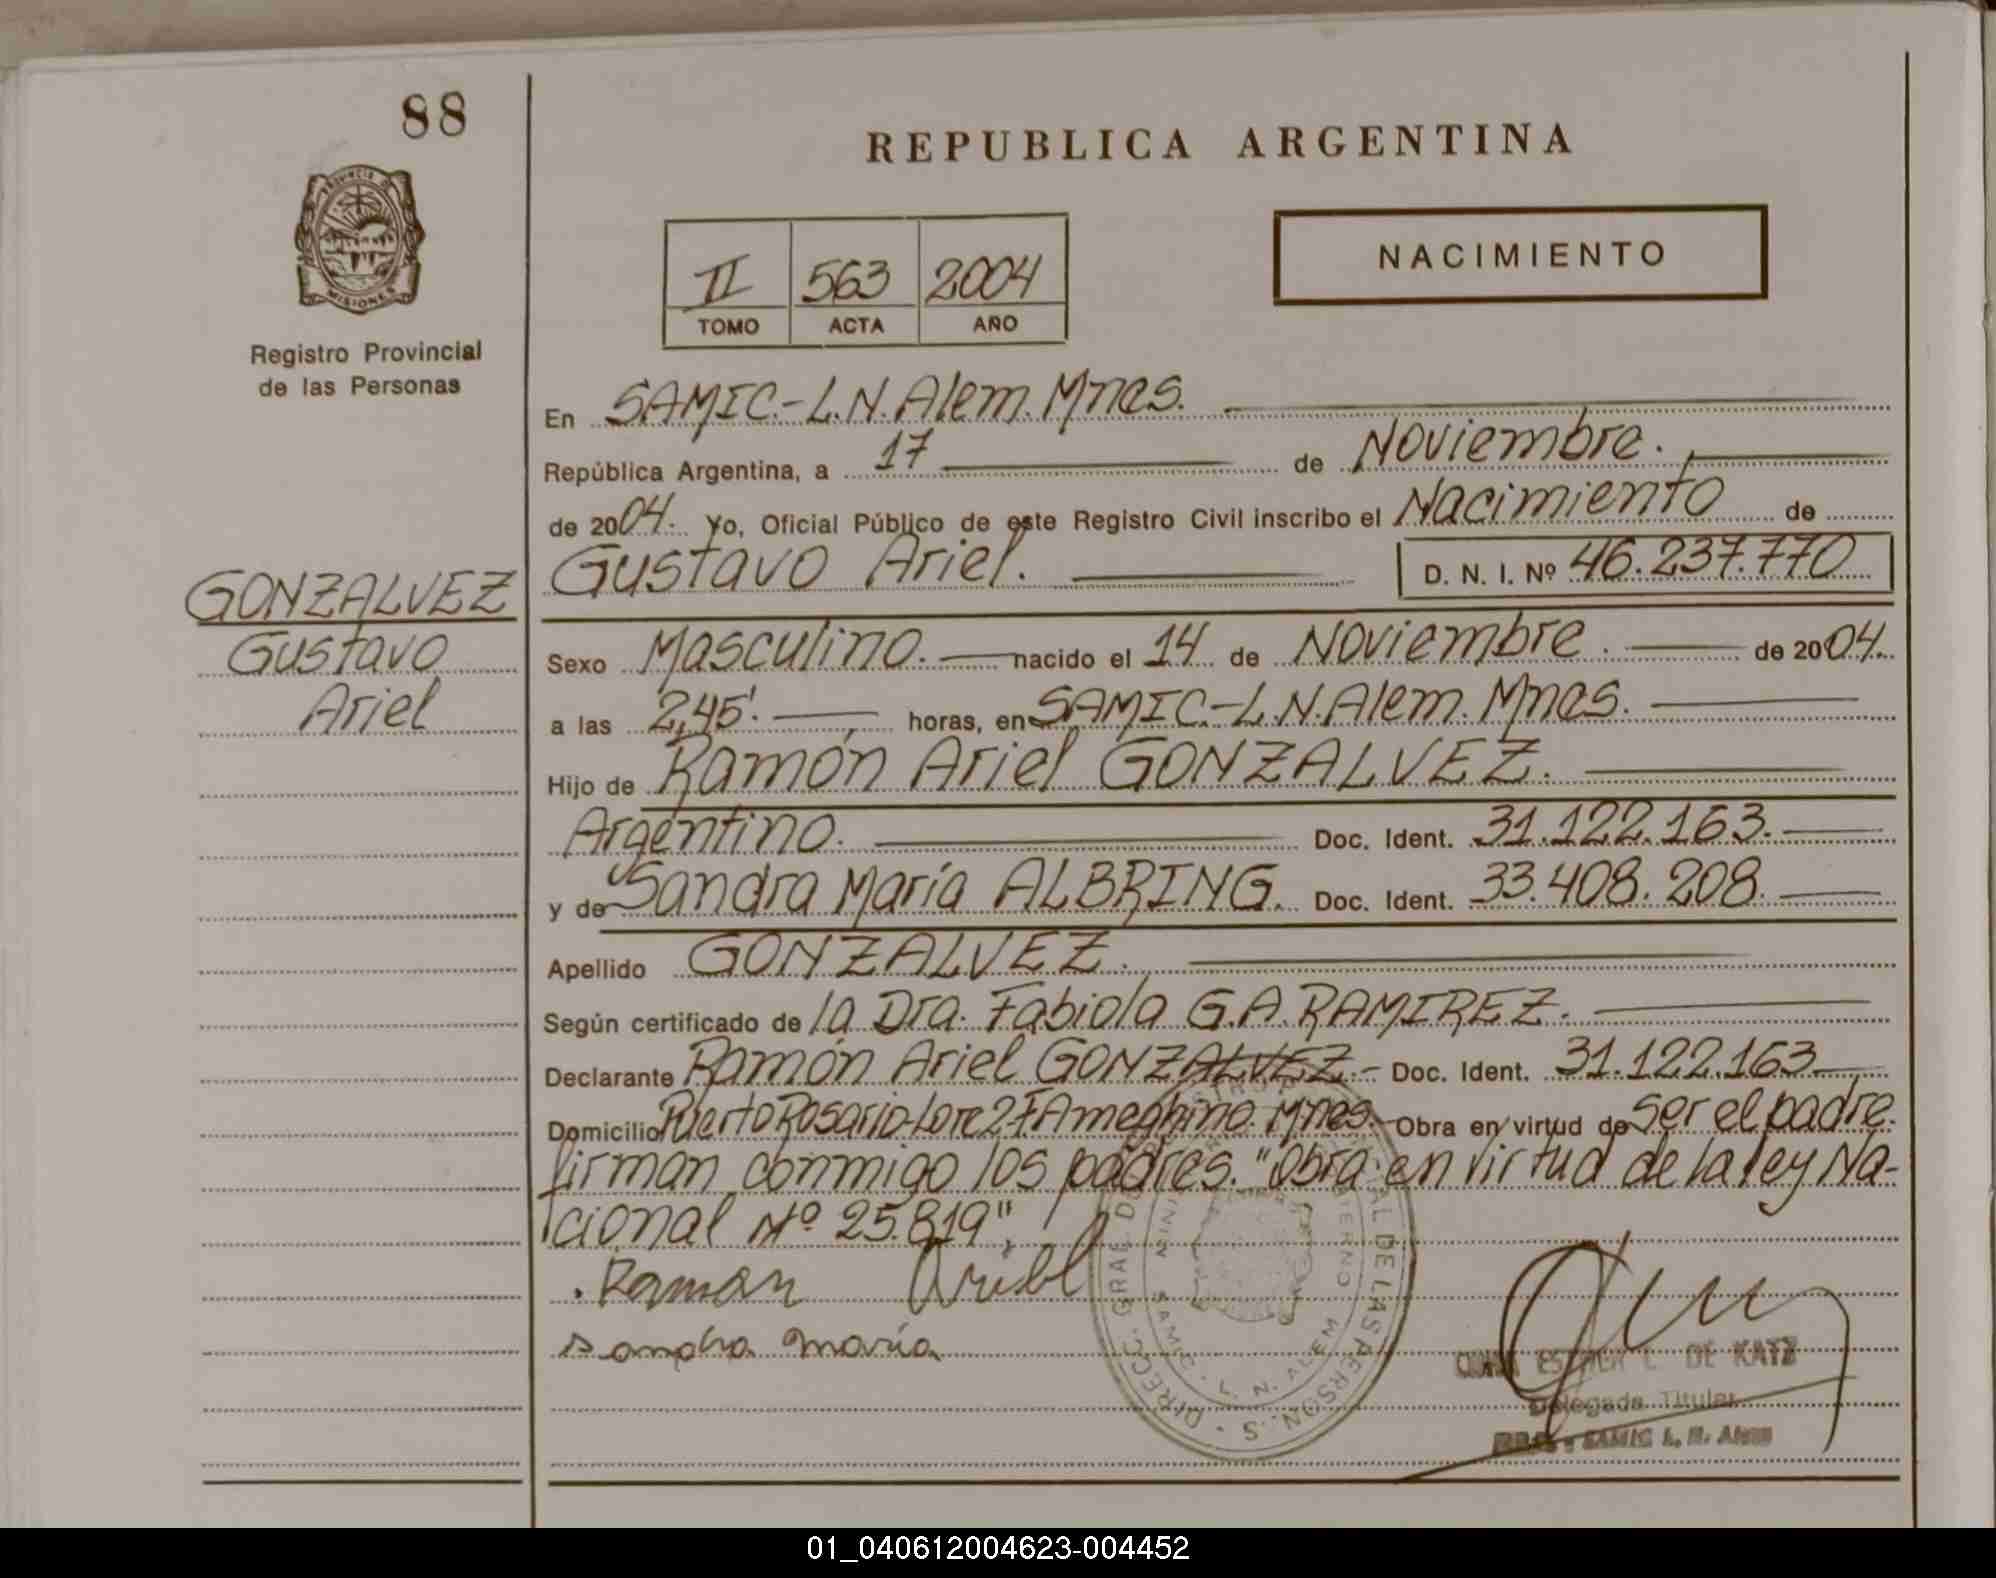 88
REPUBLICA ARGENTINA
PROVINCIA DE
MISIONES
NACIMIENTO
II 563 2004
TOMO ACTA AÑO
Registro Provincial
de las Personas
En SAMIC.-L.N.Alem.Mnes.
República Argentina, a 17 de Noviembre.
de 2004. Yo, Oficial Público de este Registro Civil inscribo el Nacimiento de
Gustavo Ariel. D. N. I. Nº 46.237.770
GONZALVEZ
Gustavo
Ariel
Sexo Masculino. nacido el 14 de Noviembre. de 2004.
a las 2,45'. horas, en SAMIC.-L.N.Alem.Mnes.
Hijo de Ramón Ariel GONZALVEZ.
Argentino. Doc. Ident. 31.122.163.
y de Sandra María ALBRING. Doc. Ident. 33.408.208.
Apellido GONZALVEZ.
Según certificado de la Dra. Fabiola G.A. RAMIREZ.
Declarante Ramón Ariel GONZALVEZ.- Doc. Ident. 31.122.163
Domicilio Puerto Rosario-Lote 27. F. Ameghino. Mnes. Obra en virtud de ser el padre.
firman conmigo los padres. "Obra en virtud de la ley Na-
cional Nº 25.819".
Ramon Ariel
Sandra maría
DE LAS PERSONAS
SAMIC. L. N. ALEM
ESTHER L. DE KATZ
Delegada Titular
SAMIC L. N. Alem
01_040612004623-004452